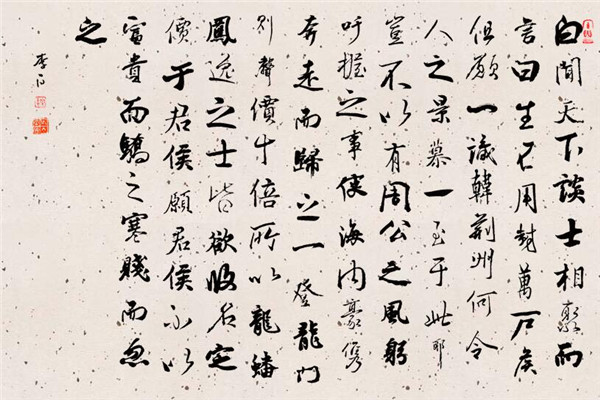 白聞天下談士相聚而
言曰生不用封萬戶侯
但願一識韓荊州何令
人之景慕一至于此耶
豈不以有周公之風躬
吐握之事使海内豪儁
奔走而歸之一登龍門
則聲價十倍所以龍蟠
鳳逸之士皆欲收名定
價于君侯願君侯不以
富貴而驕之寒賤而忽
之